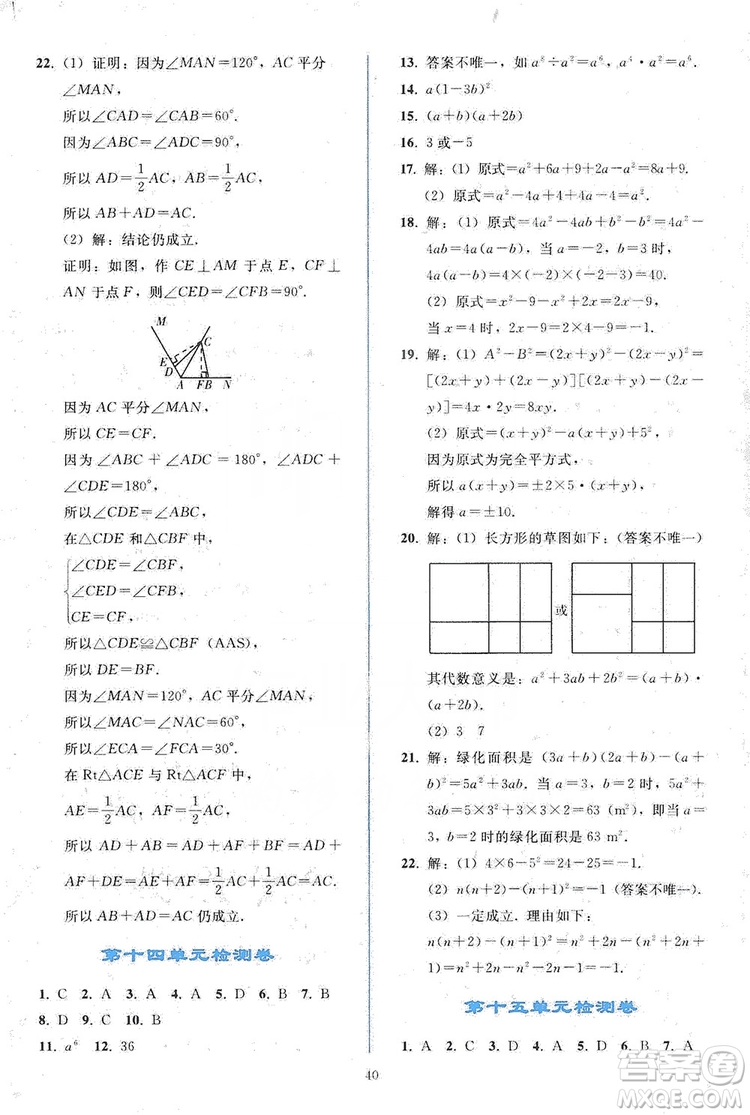 22. (1) 证明：因为∠MAN＝120°，AC 平分
∠MAN，
所以∠CAD＝∠CAB＝60°.
因为∠ABC＝∠ADC＝90°，
所以 AD＝1/2 AC，AB＝1/2 AC，
所以 AB＋AD＝AC.
(2) 解：结论仍成立.
证明：如图，作 CE⊥AM 于点 E，CF⊥
AN 于点 F，则∠CED＝∠CFB＝90°.
M
C
E
D
A F B N
因为 AC 平分∠MAN，
所以 CE＝CF.
因为∠ABC＋∠ADC＝180°，∠ADC＋
∠CDE＝180°，
所以∠CDE＝∠ABC，
在△CDE 和△CBF 中，
∠CDE＝∠CBF，
∠CED＝∠CFB，
CE＝CF，
所以△CDE≌△CBF (AAS)，
所以 DE＝BF.
因为∠MAN＝120°，AC 平分∠MAN，
所以∠MAC＝∠NAC＝60°，
所以∠ECA＝∠FCA＝30°.
在 Rt△ACE 与 Rt△ACF 中，
AE＝1/2 AC，AF＝1/2 AC，
所以 AD＋AB＝AD＋AF＋BF＝AD＋
AF＋DE＝AE＋AF＝1/2 AC＋1/2 AC＝AC，
所以 AB＋AD＝AC 仍成立.
第十四单元检测卷
1. C 2. A 3. A 4. A 5. D 6. B 7. B
8. D 9. C 10. B
11. a⁶ 12. 36
13. 答案不唯一，如 a⁸÷a²＝a⁶，a⁴·a²＝a⁶.
14. a(1－3b)²
15. (a＋b)(a＋2b)
16. 3 或－5
17. 解：(1) 原式＝a²＋6a＋9＋2a－a²＝8a＋9.
(2) 原式＝a²－4a＋4＋4a－4＝a².
18. 解：(1) 原式＝4a²－4ab＋b²－b²＝4a²－
4ab＝4a(a－b)，当 a＝－2，b＝3 时，
4a(a－b)＝4×(－2)×(－2－3)＝40.
(2) 原式＝x²－9－x²＋2x＝2x－9，
当 x＝4 时，2x－9＝2×4－9＝－1.
19. 解：(1) A²－B²＝(2x＋y)²－(2x－y)²＝
[(2x＋y)＋(2x－y)][(2x＋y)－(2x－
y)]＝4x·2y＝8xy.
(2) 原式＝(x＋y)²－a(x＋y)＋5²，
因为原式为完全平方式，
所以 a(x＋y)＝±2×5·(x＋y)，
解得 a＝±10.
20. 解：(1) 长方形的草图如下：(答案不唯一)
或
其代数意义是：a²＋3ab＋2b²＝(a＋b)·
(a＋2b).
(2) 3 7
21. 解：绿化面积是 (3a＋b)(2a＋b)－(a＋
b)²＝5a²＋3ab. 当 a＝3，b＝2 时，5a²＋
3ab＝5×3²＋3×3×2＝63 (m²)，即当 a＝
3，b＝2 时的绿化面积是 63 m².
22. 解：(1) 4×6－5²＝24－25＝－1
(2) n(n＋2)－(n＋1)²＝－1 (答案不唯一).
(3) 一定成立. 理由如下：
n(n＋2)－(n＋1)²＝n²＋2n－(n²＋2n＋
1)＝n²＋2n－n²－2n－1＝－1.
第十五单元检测卷
1. A 2. A 3. A 4. D 5. D 6. B 7. A
40
答案圈
MXQE.COM